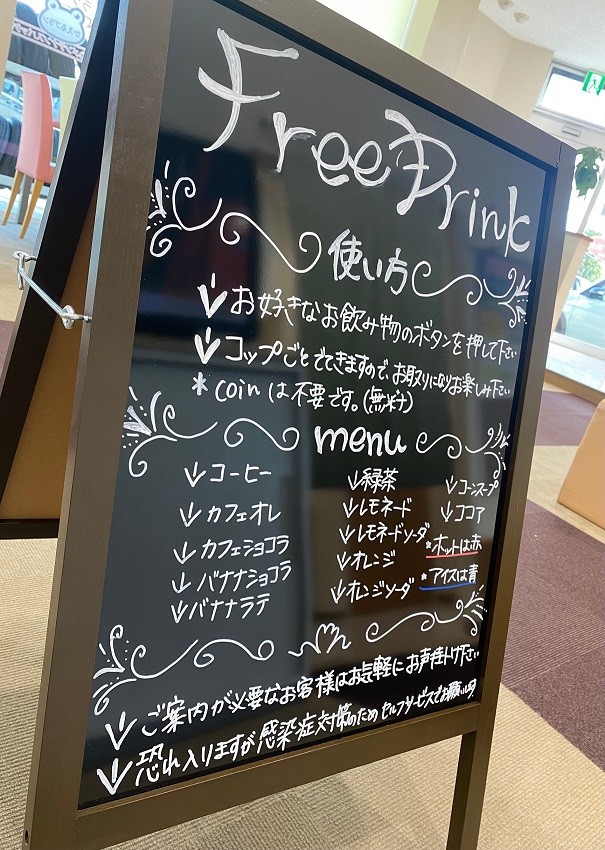 Free Drink
使い方
↓お好きなお飲み物のボタンを押して下さい
↓コップごとでてきますので、お取りになりお楽しみ下さい
*coinは不要です。(無料)
menu
↓コーヒー
↓カフェオレ
↓カフェショコラ
↓バナナショコラ
↓バナナラテ
↓緑茶
↓レモネード
↓レモネードソーダ
↓オレンジ
↓オレンジソーダ
↓コーンスープ
↓ココア
*ホットは赤
*アイスは青
↓ご案内が必要なお客様はお気軽にお声掛け下さい
↓恐れ入りますが感染症対策のためセルフサービスでお願い